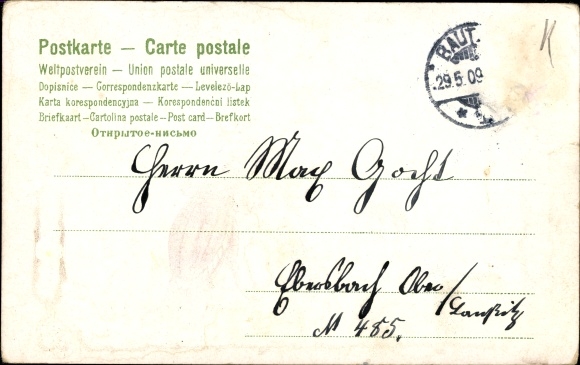 Postkarte — Carte postale
Weltpostverein — Union postale universelle
Dopisnice — Correspondenzkarte — Levelező-Lap
Karta korespondencyjna — Korespondenční listek
Briefkaart — Cartolina postale — Post card — Brefkort
Открытое-письмо
BAUT
29.5.09
K
Herrn Max Gocht
Ebersbach Ober/
Lausitz
№ 485.